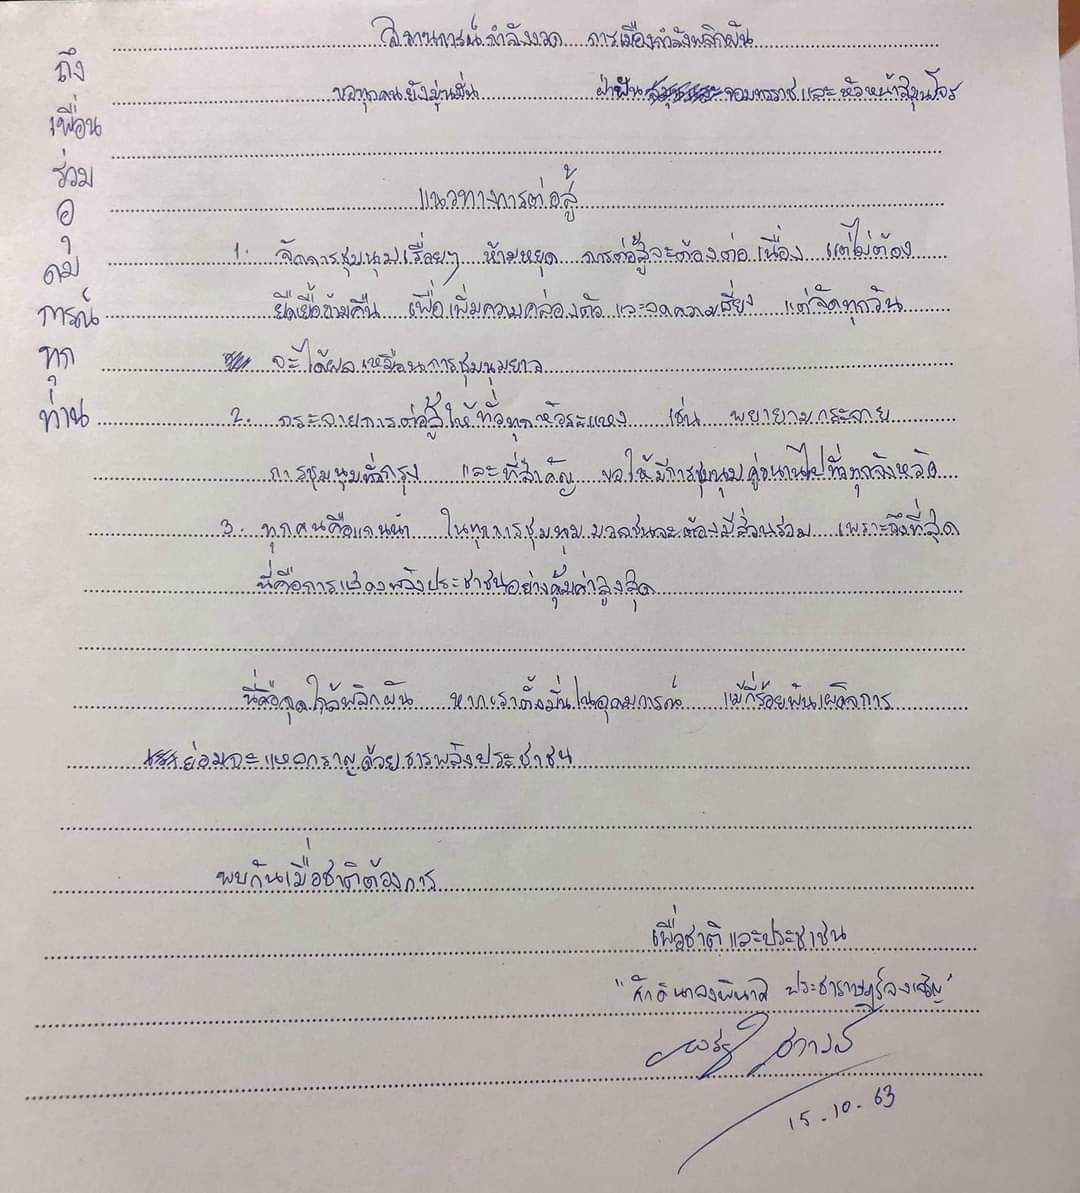 ถึง
เพื่อน
ร่วม
อุ
ดม
การณ์
ทุก
ท่าน
สถานการณ์กำลังงวด การเมืองกำลังพลิกผัน
ขอทุกคนยังมุ่นมั่น ฝ่าฟัน จอมทรราชและหัวหน้าสมุนโจร
แนวทางการต่อสู้
1. จัดการชุมนุมเรื่อยๆ ห้ามหยุด การต่อสู้จะต้องต่อเนื่อง แต่ไม่ต้อง
ยืดเยื้อข้ามคืน เพื่อเพิ่มความคล่องตัว และลดความเสี่ยง แต่จัดทุกวัน
จะได้ผลเหมือนการชุมนุมยาว
2. กระจายการต่อสู้ให้ทั่วทุกหัวระแหง เช่น พยายามกระจาย
การชุมนุมทั่วกรุง และที่สำคัญ ขอให้มีการชุมนุมคู่ขนานไปทั่วทุกจังหวัด
3. ทุกคนคือแกนนำ ในทุกการชุมนุม มวลชนจะต้องมีส่วนร่วม เพราะถึงที่สุด
นี่คือการแสดงพลังประชาชนอย่างคุ้มค่าสูงสุด
นี่คือจุดใกล้พลิกผัน หากเราตั้งมั่นในอุดมการณ์ แม้กี่ร้อยพันเผด็จการ
ย่อมจะแหลกราญด้วยธารพลังประชาชน
พบกันเมื่อชาติต้องการ
เพื่อชาติและประชาชน
"ศักดินาจงพินาศ ประชาราษฎร์จงเจริญ"
15-10-63